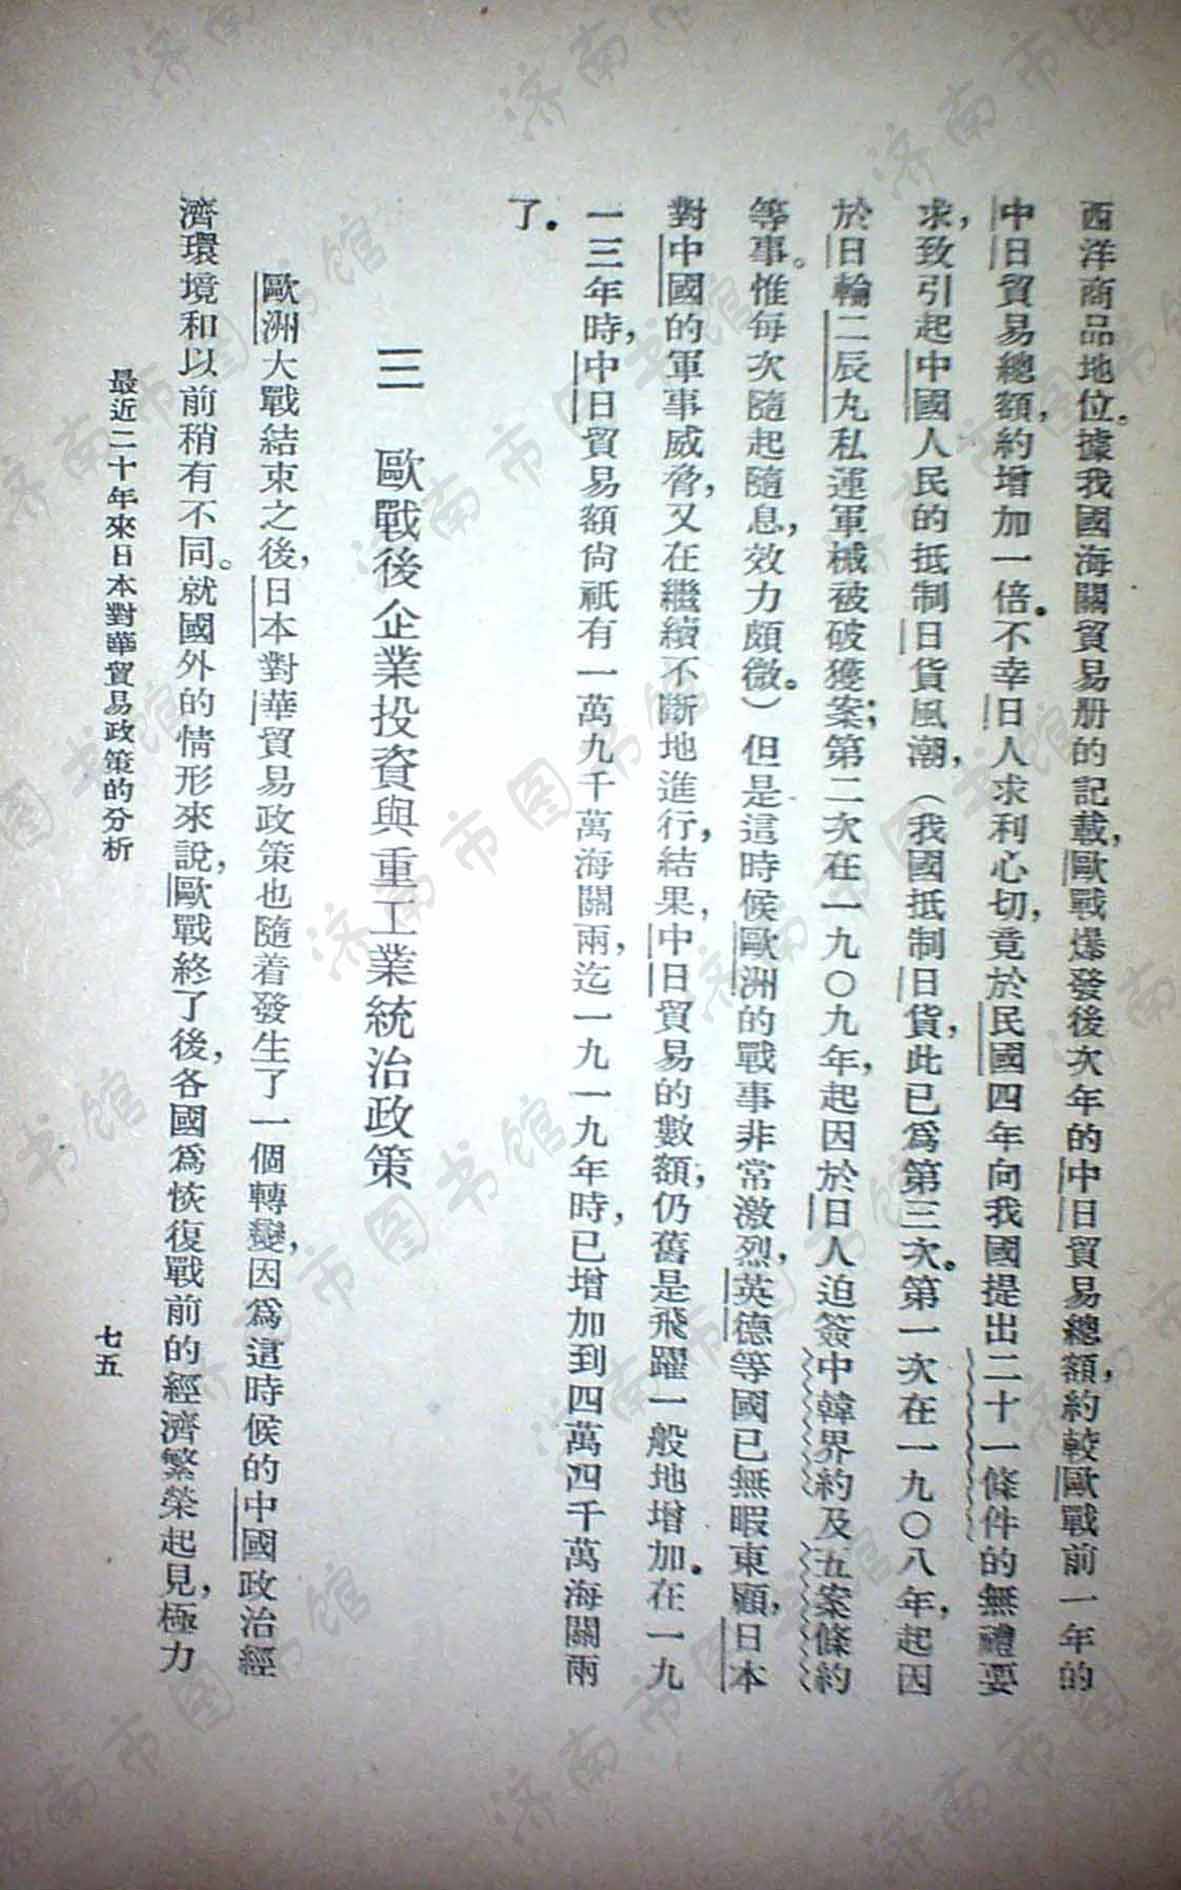 西洋商品地位。據我國海關貿易册的記載，歐戰爆發後次年的中日貿易總額，約較歐戰前一年的
中日貿易總額，約增加一倍。不幸日人求利心切，竟於民國四年向我國提出二十一條件的無禮要
求，致引起中國人民的抵制日貨風潮，（我國抵制日貨，此已爲第三次。第一次在一九〇八年，起因
於日輪二辰丸私運軍械被破獲案；第二次在一九〇九年，起因於日人迫簽中韓界約及五案條約
等事。惟每次隨起隨息，效力頗微。）但是這時候歐洲的戰事非常激烈，英德等國已無暇東顧，日本
對中國的軍事威脅，又在繼續不斷地進行，結果，中日貿易的數額，仍舊是飛躍一般地增加。在一九
一三年時，中日貿易額尙祇有一萬九千萬海關兩，迄一九一九年時，已增加到四萬四千萬海關兩
了。
三　歐戰後企業投資與重工業統治政策
歐洲大戰結束之後，日本對華貿易政策也隨着發生了一個轉變，因爲這時候的中國政治經
濟環境和以前稍有不同。就國外的情形來說，歐戰終了後，各國爲恢復戰前的經濟繁榮起見，極力
最近二十年來日本對華貿易政策的分析
七五
济南市图书馆